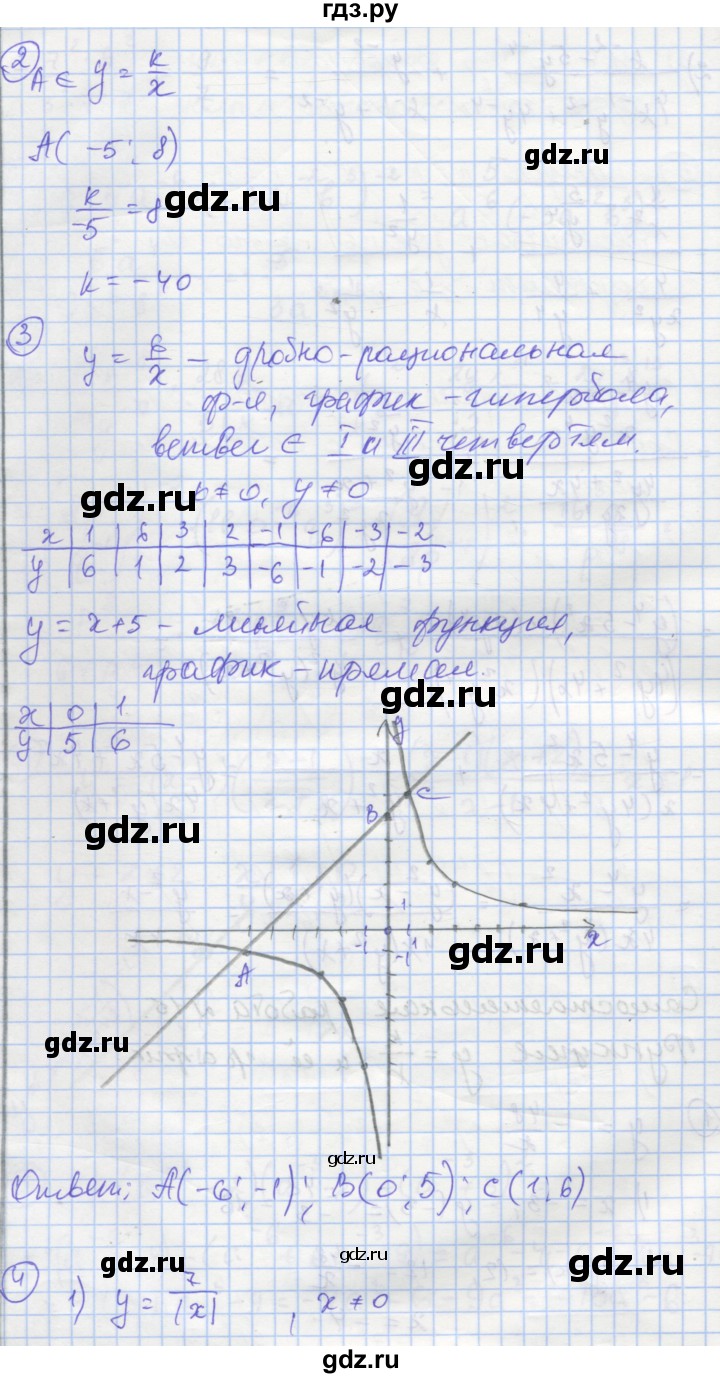 гдз.ру
② A ∈ y = к/x
A( -5; 8)
gdz.ru
к/-5 = 8
gdz.ru
к = -40
③ y = 6/x - дробно-рациональная
ф-я, график - гипербола,
ветви ∈ I и III четвертям.
gdz.ru
gdz.ru
x ≠ 0, y ≠ 0
x | 1 | 6 | 3 | 2 | -1 | -6 | -3 | -2
y | 6 | 1 | 2 | 3 | -6 | -1 | -2 | -3
y = x+5 - линейная функция,
график - прямая.
gdz.ru
x | 0 | 1
y | 5 | 6
y
C
B
gdz.ru
1
-1 0 1 x
-1
gdz.ru
A
gdz.ru
gdz.ru
Ответ: A(-6; -1); B(0; 5); C(1; 6)
gdz.ru
gdz.ru
gdz.ru
④ 1) y = 7/|x| , x ≠ 0
gdz.ru